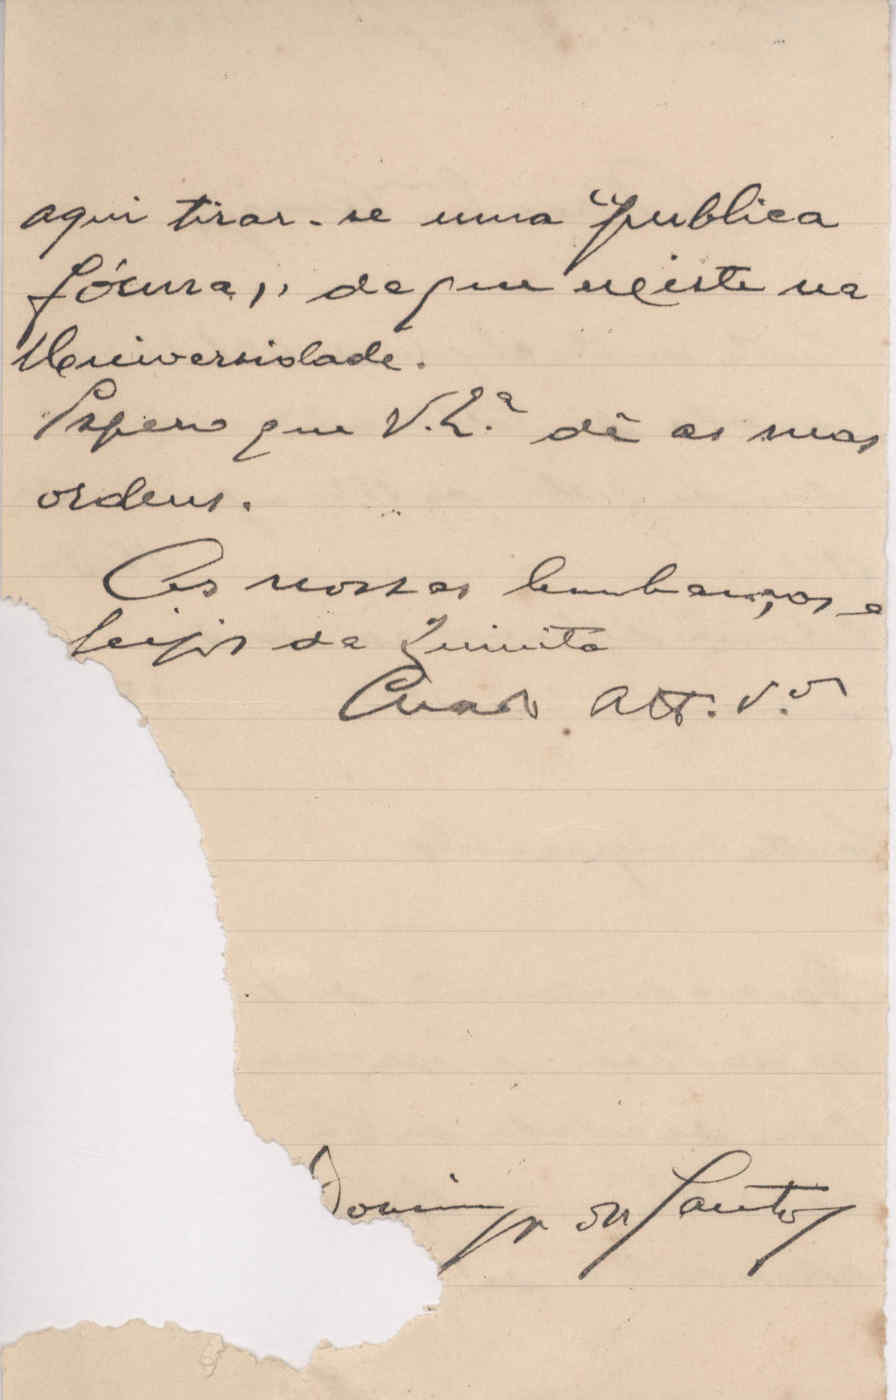 aqui tirar-se uma "publica
fórma,, da que existe na
Universidade.
Espero que V. Ex.ª dê as suas
ordens.
As nossas lembranças e
beijos da
Cread Att. V.or
Domingos dos Santos